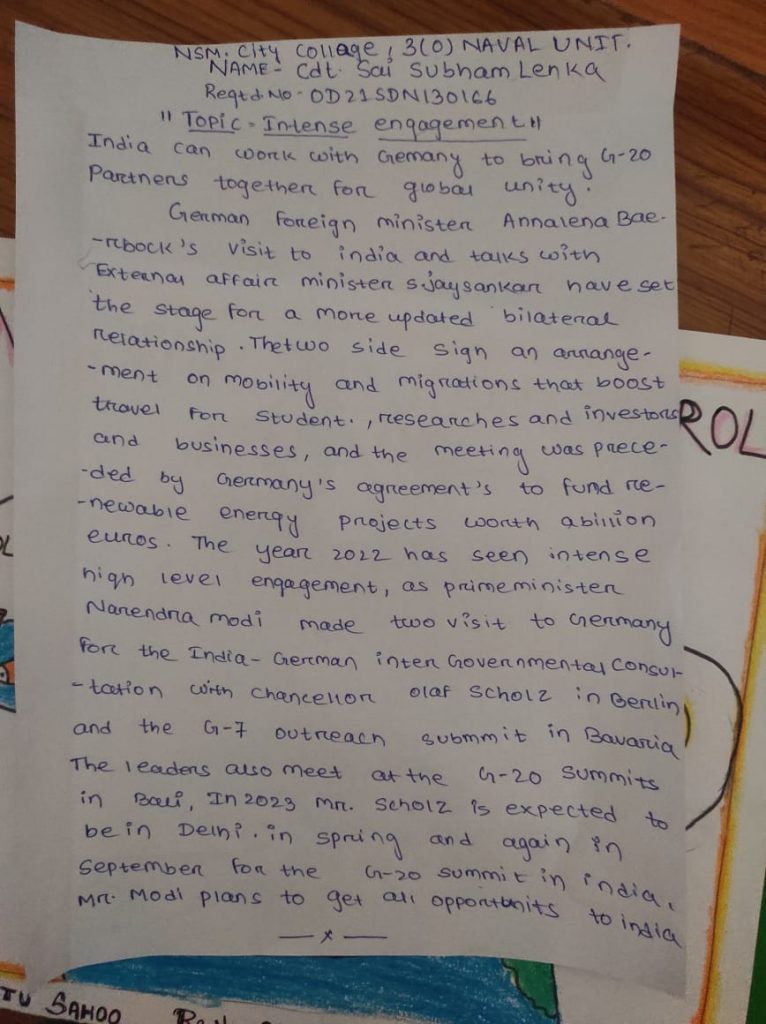 NSM. City Collage, 3(O) NAVAL UNIT.
NAME - Cdt. Sai Subham Lenka
Regtd. No - OD21SDN130166
"Topic - Intense engagement"
India can work with Gemany to bring G-20
Partners together for global unity.
German foreign minister Annalena Bae-
-rbock's visit to india and talks with
External affair minister s jaysankar have set
the stage for a more updated bilateral
relationship. The two side sign an arrange-
-ment on mobility and migrations that boost
travel for student., researches and investors
and businesses, and the meeting was prece-
-ded by Germany's agreement's to fund re-
-newable energy projects worth a billion
euros. The year 2022 has seen intense
high level engagement, as prime minister
Narendra modi made two visit to Germany
for the India - German inter Governmental Consul-
-tation with chancellor olaf Scholz in Berlin
and the G-7 outreach submmit in Bavaria
The leaders also meet at the G-20 Summits
in Bali, In 2023 mr. scholz is expected to
be in Delhi. in spring and again in
September for the G-20 summit in india.
Mr. Modi plans to get all opportunits to india
— x —
ROL
TU SAHOO